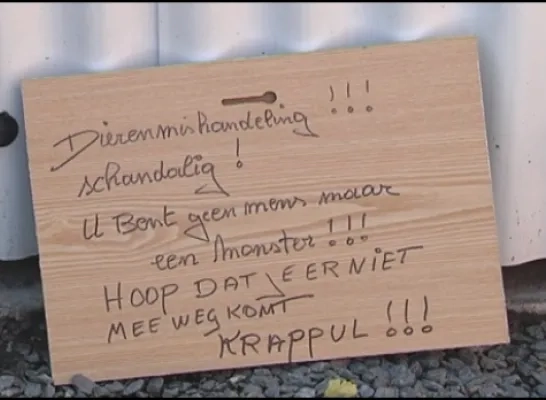 Dierenmishandeling !!!
schandalig !
U Bent geen mens maar
een monster !!!
HOOP DAT JE ER NIET
MEE WEG KOMT
KRAPPUL !!!